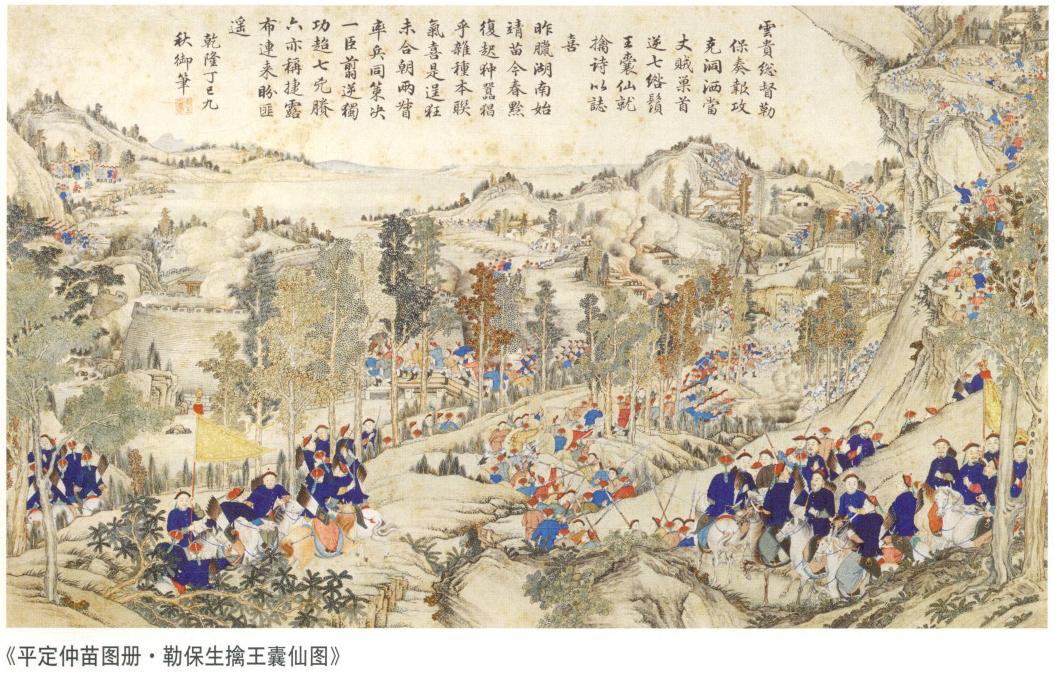 雲貴總督勒
保奏報攻
克洞洒當
丈賊巢首
逆七綹鬚
王囊仙就
擒詩以誌
喜
昨臘湖南始
靖苗今春黔
復起狆囂猖
乎雜種本聯
氣喜是逞狂
未合朝兩省
率兵同策決
一臣翦逆獨
功超七完賸
六亦稱捷露
布連來盼匪
遥
乾隆丁巳九
秋御筆
《平定仲苗图册·勒保生擒王囊仙图》